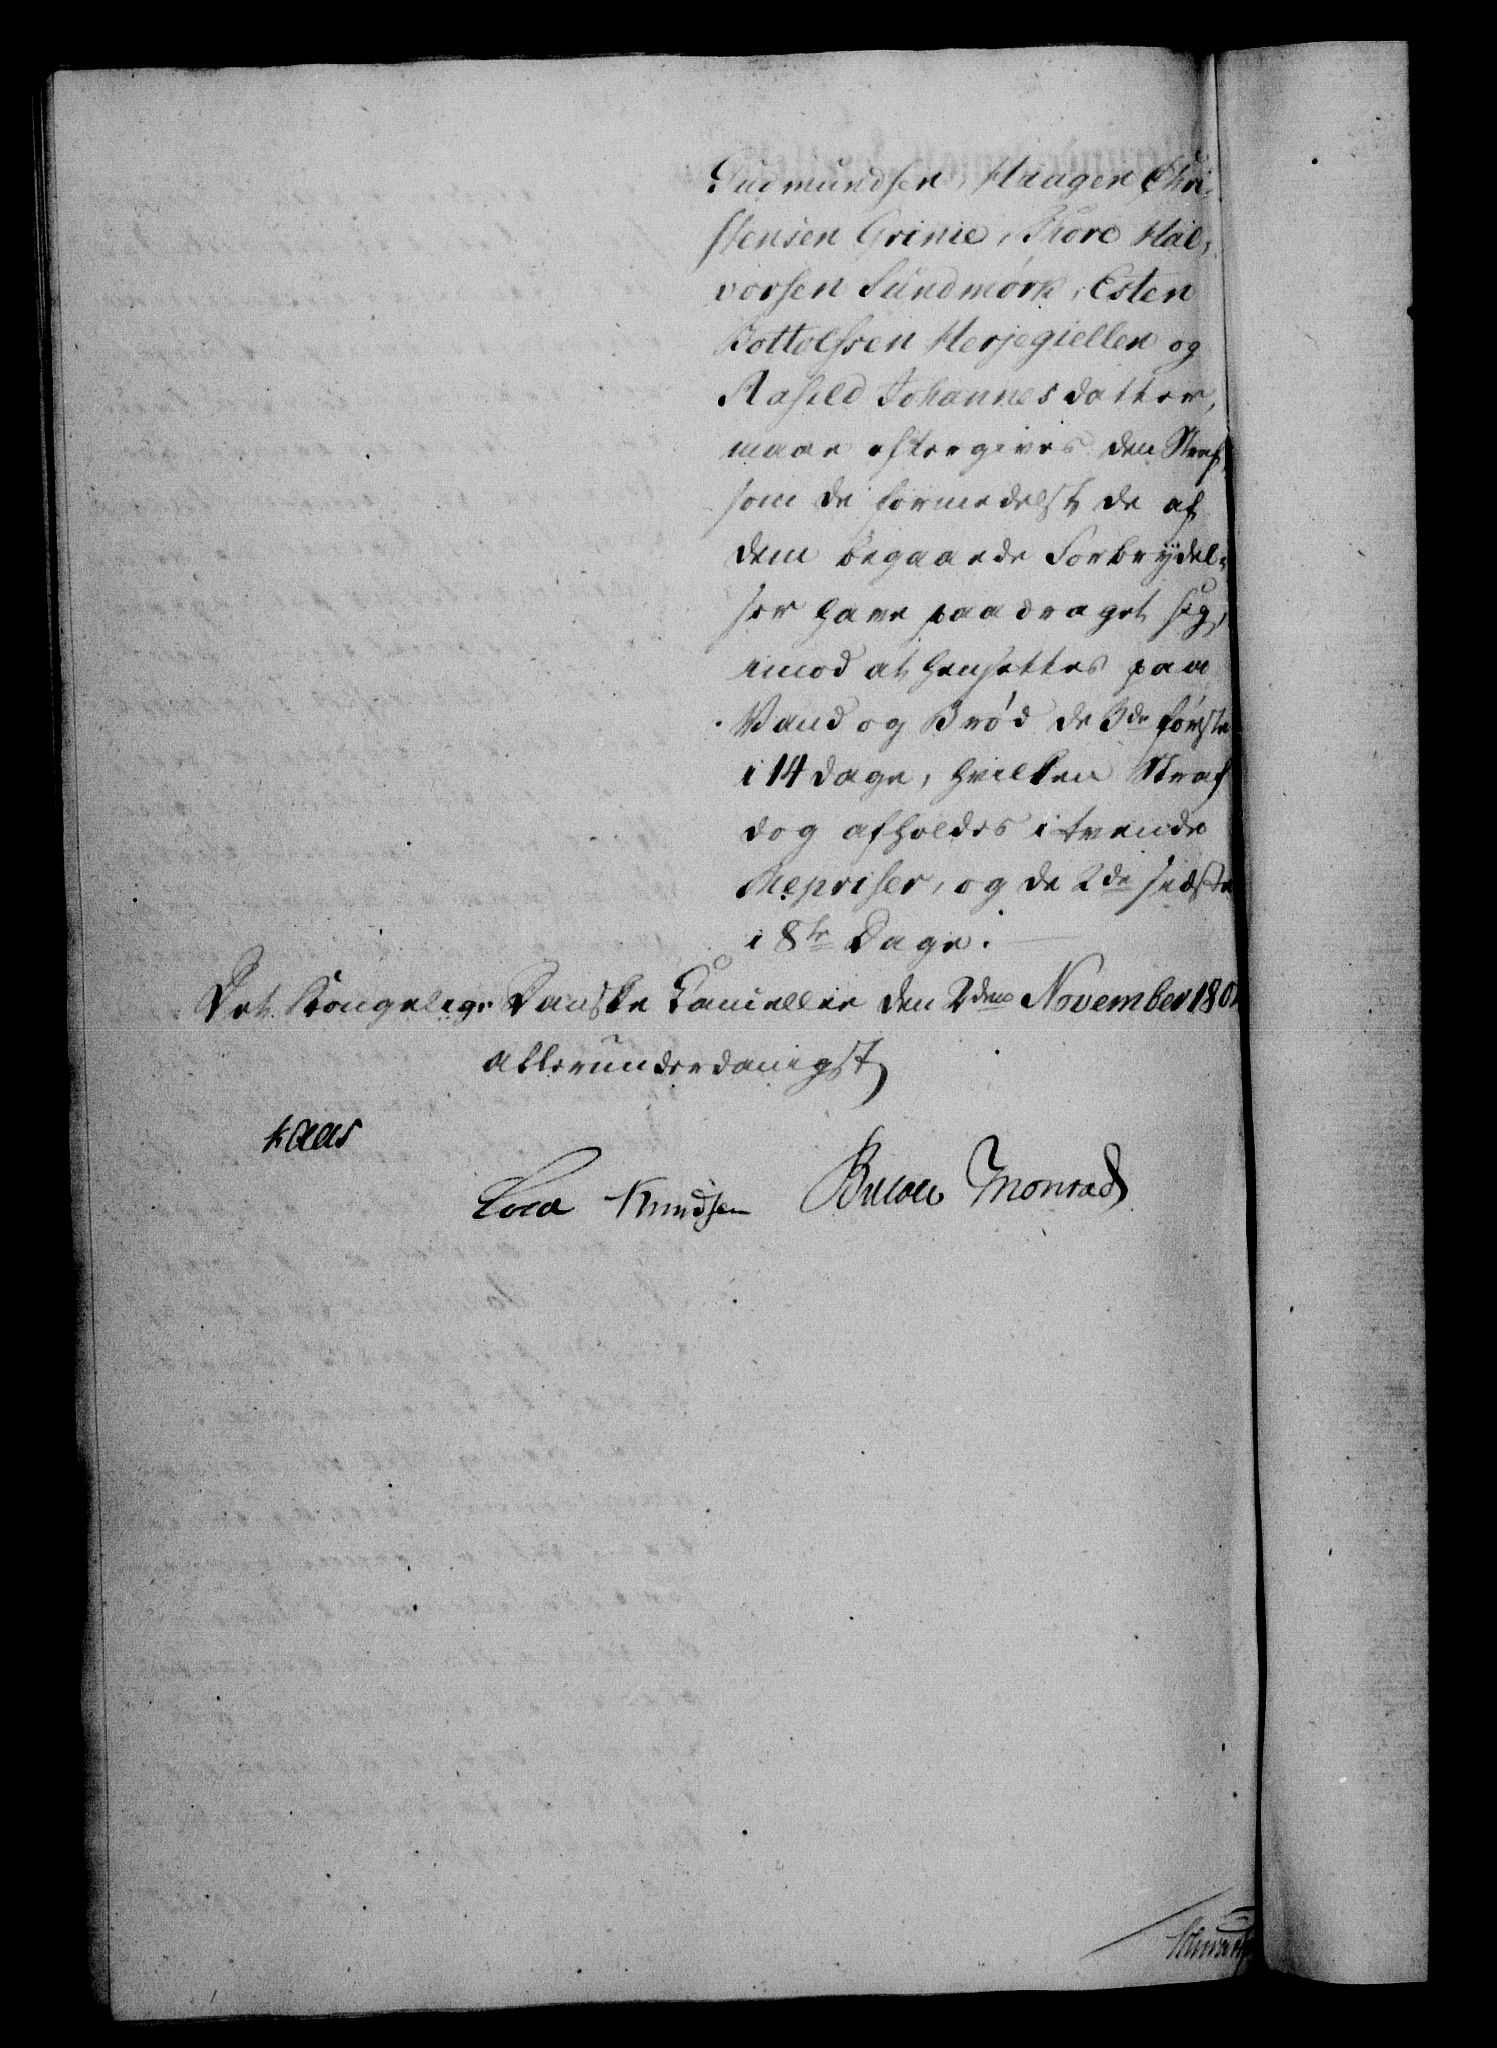 Gudmundsen, Haagen Chri-
stensen Grime, Thore Hal-
vorsen Sundmørk, Esten
Bottolfsen Herjegiellen og
Aashild Johannesdatter,
maae eftergives den Straf,
som de formedelst de af
dem begaaede Forbrydel-
ser have paadraget sig,
imod at hensettes paa
Vand og Brød de 3de første
i 14 Dage, hvilken Straf
dog afholdes i tvende
Repriser, og de 2de sidste
i 8te Dage.
Det Kongelige Danske Cancellie den 2den November 180
allerunderdanigst
Kaas
Cold Knudsen Bülow Monrad